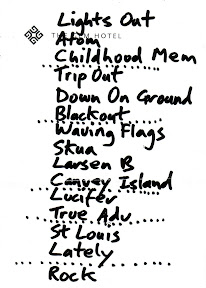 Lights Out
Atom
HOTEL
Childhood Mem
Trip Out
Down On Ground
Blackout
Waving Flags
Skua
Larsen B
Canvey Island
Lucifer
True Adv
St Louis
Lately
Rock